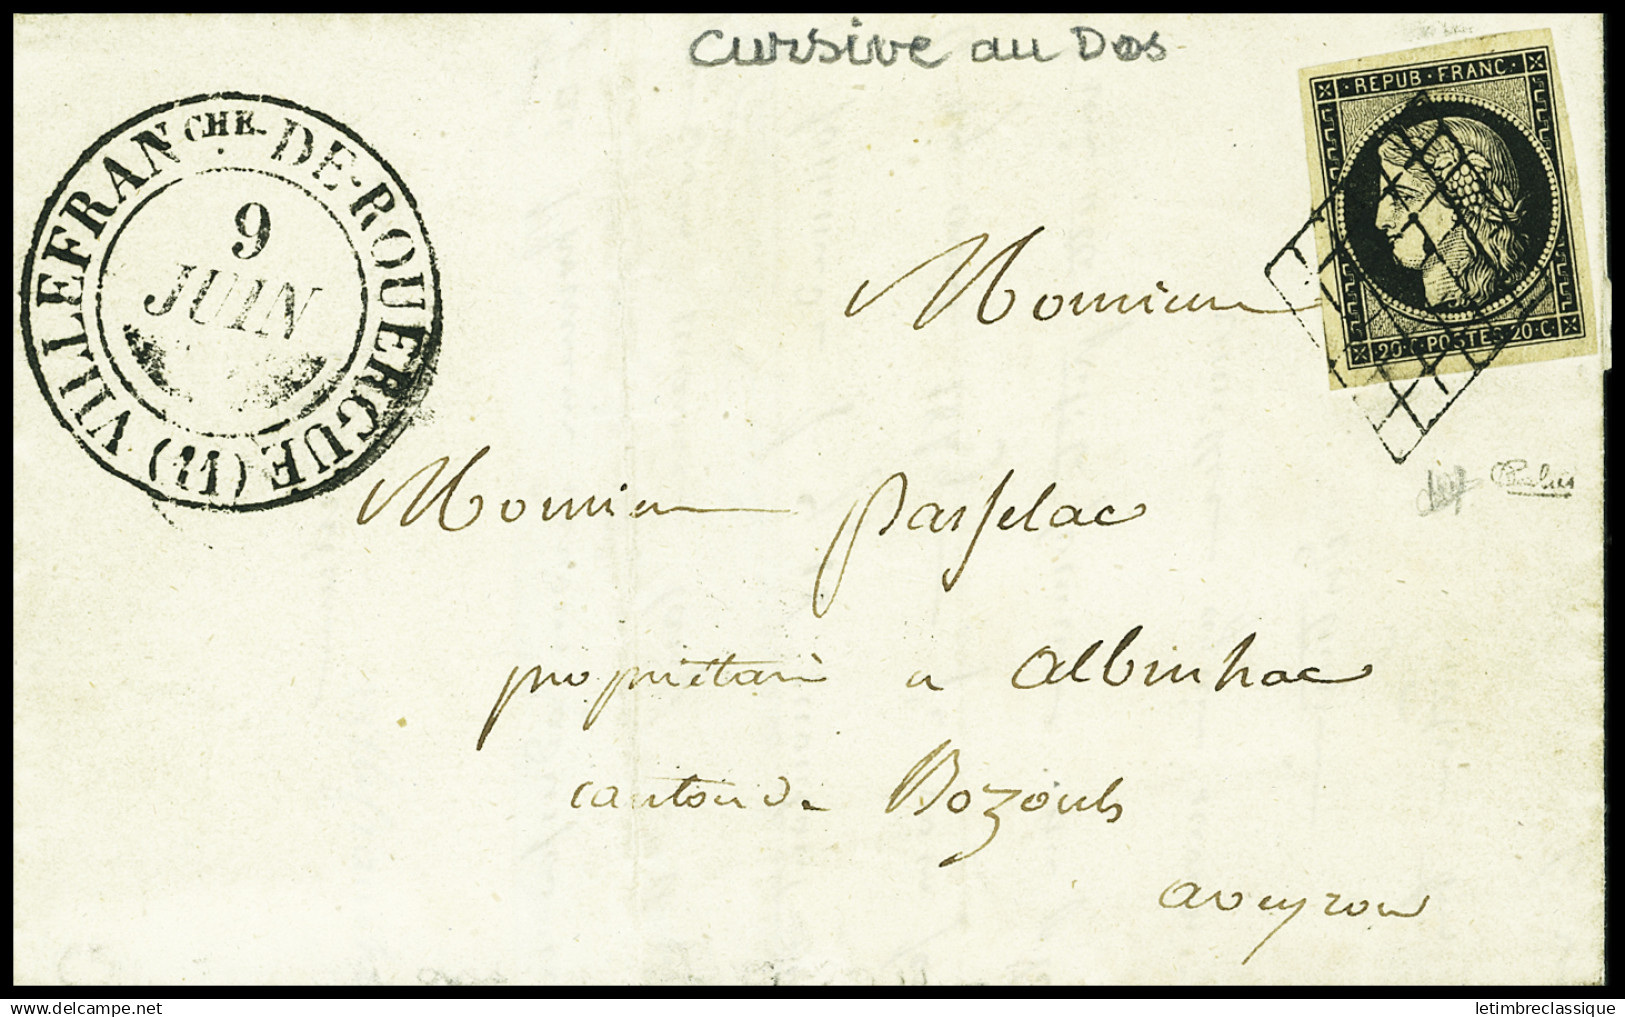 cursive au Dos
VILLEFRANCHE-DE-ROUERGUE (11)
9
JUIN
REPUB·FRANC·
20·C·POSTES·20·C·
Monsieur
Monsieur parselac
propriétaire a Albinhac
canton de Bozouls
aveyron
delcampe.net
letimbreclassique